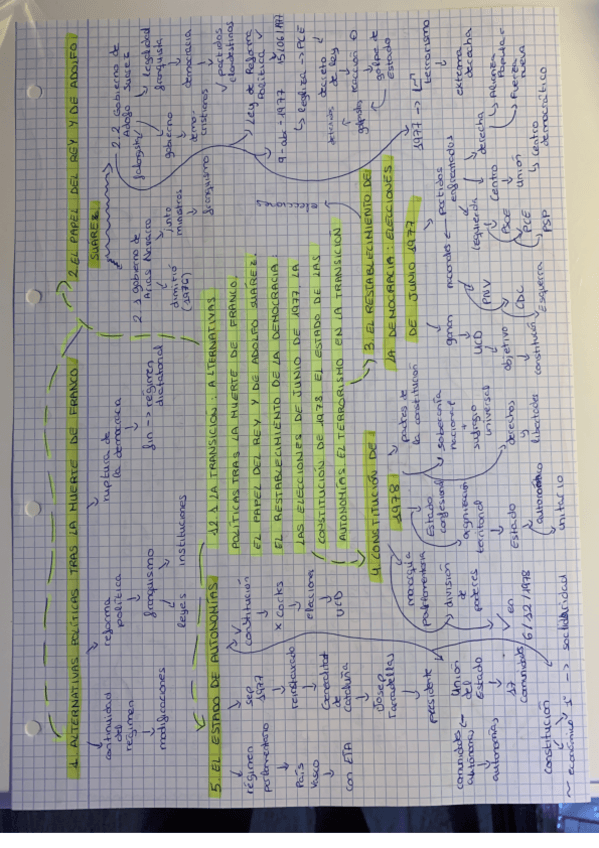 1. ALTERNATIVAS POLÍTICAS TRAS LA MUERTE DE FRANCO
continuidad
del
régimen
modificaciones
reforma
política
franquismo
leyes
instituciones
ruptura de
la democracia
fin -> régimen
dictatorial
2. EL PAPEL DEL REY Y DE ADOLFO
SUÁREZ
2.1 gobierno de
Arias Navarro
dimitió
(1976)
ministros
franquismo
2.2 gobierno de
Adolfo Suárez
gobierno
demo-
cristianos
legalidad
franquista
democracia
partidos
clandestinos
Ley de Reforma
Política
15/06/1977
9-abr-1977
legaliza -> PCE
decreto
de ley
reacción
golpe de
estado
12.1 LA TRANSICIÓN: ALTERNATIVAS
POLÍTICAS TRAS LA MUERTE DE FRANCO.
EL PAPEL DEL REY Y DE ADOLFO SUÁREZ.
EL RESTABLECIMIENTO DE LA DEMOCRACIA
LAS ELECCIONES DE JUNIO DE 1977. LA
CONSTITUCIÓN DE 1978. EL ESTADO DE LAS
AUTONOMÍAS. EL TERRORISMO EN LA TRANSICIÓN
3. EL RESTABLECIMIENTO DE
LA DEMOCRACIA: ELECCIONES
DE JUNIO 1977
1977 ->
terrorismo
extrema
derecha
partidos
enfrentados
izquierda
PSOE
PCE
PSP
centro
Unión
centro
democrático
derecha
Alianza
Popular
Fuerza
nueva
PNV
CDC
esquerra
ganan
UCD
objetivo
constitución
4. CONSTITUCIÓN DE
1978
padres de
la constitución
monarquía
parlamentaria
división
de
poderes
en
6/12/1978
Estado
confesional
organización
territorial
Estado
autonómico
unitario
soberanía
nacional
+
sufragio
universal
derechos
y
libertades
5. EL ESTADO DE AUTONOMÍAS
régimen
parlamentario
País
Vasco
con ETA
sep
1977
reinstaurado
Generalitat
de
Cataluña
Josep
Tarradellas
presidente
constitución
x Cortes
elecciones
UCD
Unión
del
Estado
17
comunidades
comunidades
autónomas
autonomías
Constitución
económico
1º -> solidaridad